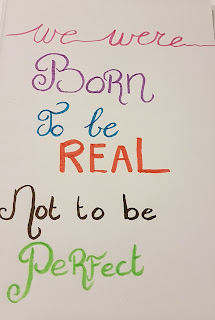 we were
BORN
To be
REAL
Not to be
PeRFect